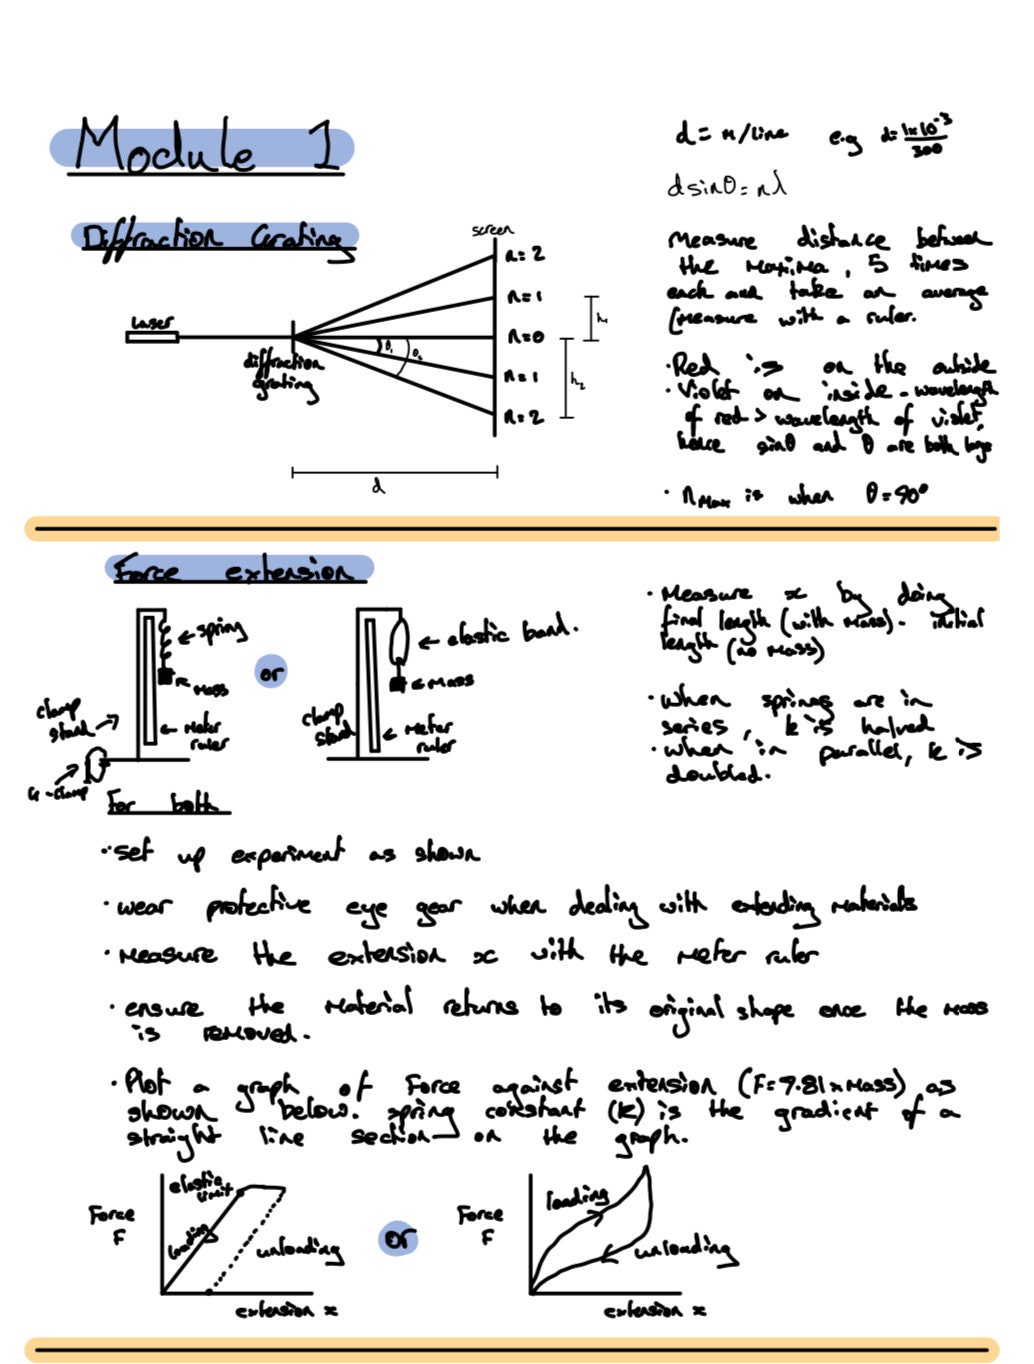 Module 1
Diffraction Grating
screen
n=2
n=1
n=0
n=1
n=2
h₁
h₂
θ₁
θ₂
laser
diffraction
grating
d
d = m/line e.g d= 1×10⁻³/300
dsinθ = nλ
Measure distance between
the maxima, 5 times
each and take an average
(measure with a ruler.
· Red is on the outside
· Violet on inside - wavelength
of red > wavelength of violet,
hence sinθ and θ are both large
· nmax is when θ=90°
Force extension
spring
mass
clamp
stand
meter
ruler
G-clamp
or
elastic band.
mass
clamp
stand
meter
ruler
· Measure x by doing
final length (with mass) - initial
length (no mass)
· when springs are in
series, k is halved
· when in parallel, k is
doubled.
For both
· set up experiment as shown
· wear protective eye gear when dealing with extending materials
· measure the extension x with the meter ruler
· ensure the material returns to its original shape once the mass
is removed.
· Plot a graph of Force against extension (F=9.81×mass) as
shown below. spring constant (k) is the gradient of a
straight line section on the graph.
Force
F
elastic
limit
loading
unloading
extension x
or
Force
F
loading
unloading
extension x